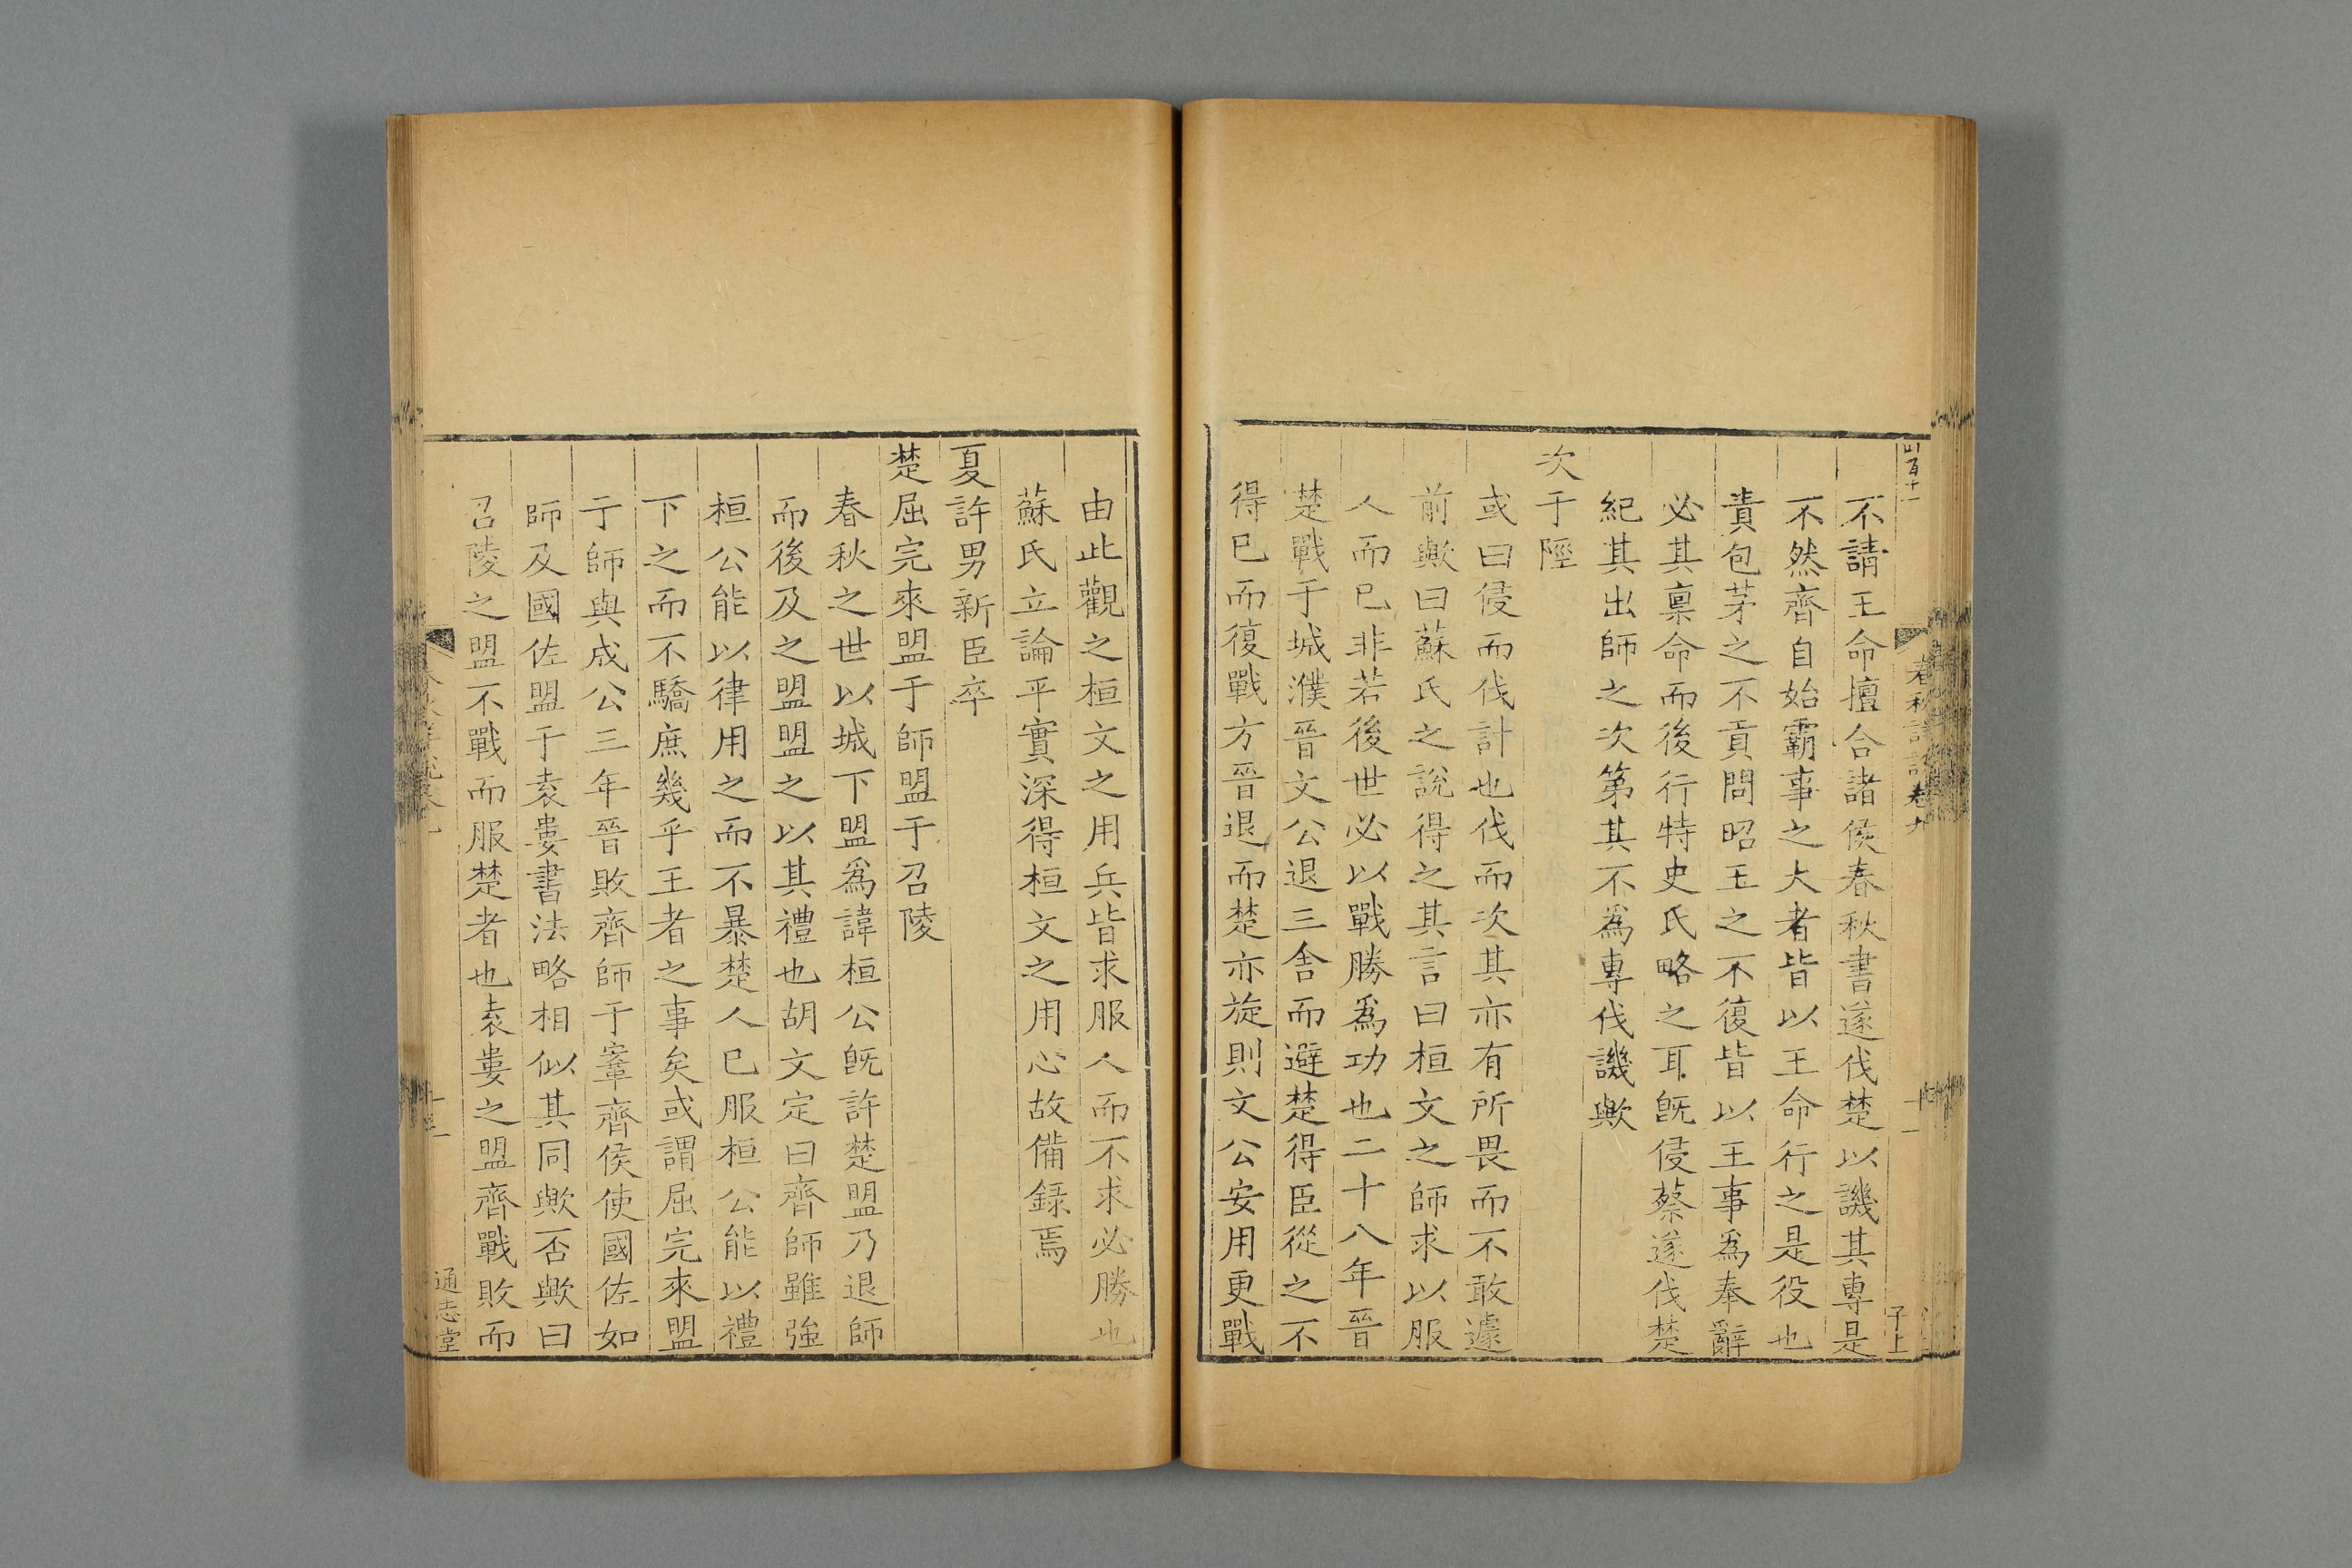 不請王命擅合諸侯春秋書遂伐楚以譏其專是
不然齊自始霸事之大者皆以王命行之是役也
責包茅之不貢問昭王之不復皆以王事爲奉辭
必其稟命而後行特史氏略之耳旣侵蔡遂伐楚
紀其出師之次第其不爲專伐譏歟
次于陘
或曰侵而伐計也伐而次其亦有所畏而不敢遽
前歟曰蘇氏之說得之其言曰桓文之師求以服
人而已非若後世必以戰勝爲功也二十八年晉
楚戰于城濮晉文公退三舍而避楚得臣從之不
得已而復戰方晉退而楚亦旋則文公安用更戰
由此觀之桓文之用兵皆求服人而不求必勝也
蘇氏立論平實深得桓文之用心故備録焉
夏許男新臣卒
楚屈完來盟于師盟于召陵
春秋之世以城下盟爲諱桓公旣許楚盟乃退師
而後及之盟盟之以其禮也胡文定曰齊師雖強
桓公能以律用之而不暴楚人已服桓公能以禮
下之而不驕庶幾乎王者之事矣或謂屈完來盟
于師與成公三年晉敗齊師于鞌齊侯使國佐如
師及國佐盟于袁婁書法略相似其同歟否歟曰
召陵之盟不戰而服楚者也袁婁之盟齊戰敗而
通志堂